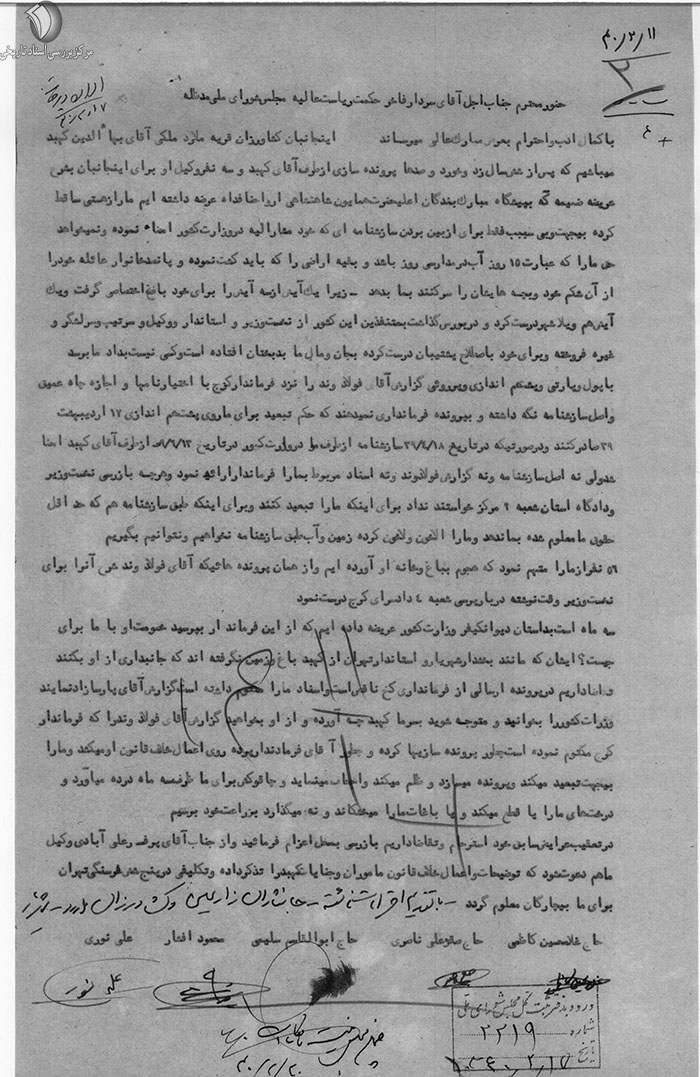 مرکز بررسی اسناد تاریخی
۴۰/۲/۱۱
حضور محترم جناب اجل آقای سردار فاخر حکمت ریاست عالیه مجلس شورای ملی مدظله
با کمال ادب و احترام بعرض مبارک عالی میرساند اینجانبان کشاورزان قریه ملارد ملکی آقای بهاء الدین کهبد
میباشیم که پس از شش سال زد و خورد و صدها پرونده سازی از طرف آقای کهبد و سه نفر وکیل او برای اینجانبان بشرح
عریضه ضمیمه که به پیشگاه مبارک بندگان اعلیحضرت همایون شاهنشاهی ارواحنا فداه عرضه داشته ایم ما را از هستی ساقط
کرده بیجهت و بی سبب فقط برای از بین بردن سازشنامه ای که خود مشارالیه در وزارت کشور امضاء نموده و نمیخواهد
حق ما را که عبارت ۱۵ روز آب در مدار سی روز باشد و بقیه اراضی را که باید کشت نموده و پانصد خانوار عائله خود را
از آن شکم خود و بچه هایشان را سیر کنند بما بدهد - زیرا یک آیش از سه آیش را برای خود باغ اختصاصی گرفت و یک
آیش هم ویلا شهر درست کرد و در بورس گذاشت بمتنفذین این کشور از نخست وزیر و استاندار و وکیل و سرتیپ و سرلشگر و
غیره فروخته و برای خود باصطلاح پشتیبان درست کرده بجان و مال ما بدبختان افتاده است و کسی نیست بداد ما برسد
با پول و پارتی و پشت هم اندازی و پرروئی گزارش آقای فولاد وند را نزد فرماندار کرج با اختیارنامه ها و اجازه چاه عمیق
و اصل سازشنامه نگه داشته و به پرونده فرمانداری نمیدهند که حکم تبعید برای ما روی پشت هم اندازی ۱۲ اردیبهشت
۳۹ صادر کنند و در صورتیکه در تاریخ ۳۹/۴/۱۸ سازشنامه از طرف ما در وزارت کشور در تاریخ از طرف آقای کهبد امضا
شد ولی نه اصل سازشنامه و نه گزارش فولادوند و نه اسناد مربوط بما را فرماندار ارائه نمود و هر چه بازرسی نخست وزیر
و دادگاه استان شعبه ۲ مرکز خواستند نداد برای اینکه ما را تبعید کنند و برای اینکه طبق سازشنامه هم که حد اقل
حقوق ما معلوم شده بما ندهد و ما را کرده زمین و آب طبق سازشنامه نخواهیم و نتوانیم بگیریم
۵۶ نفر از ما را متهم نمود که هجوم بباغ و خانه او آورده ایم و از همان پرونده هائیکه آقای فولاد وند شرح آنرا برای
نخست وزیر وقت نوشته در بازپرسی شعبه ٤ دادسرای کرج درست نمود
سه ماه است بدادستان دیوانکیفر و وزارت کشور عریضه داده ایم که از این فرماندار بپرسید خصومت او با ما برای
چیست؟ ایشان که مانند بخشدار شهریار و استاندار تهران از کهبد باغ و زمین نگرفته اند که جانبداری از او بکنند
تقاضا داریم در پرونده ارسالی از فرمانداری کرج ناقص است و اسناد ما را مکتوم داشته است گزارش آقای پارسازاد نمایند
وزارت کشور را بخوانید و متوجه شوید بسر ما کهبد چه آورده و از او بخواهید گزارش آقای فولاد وند را که فرماندار
کرج مکتوم نموده است چطور پرونده سازیها کرده و چطور آقای فرماندار پرده روی اعمال خلاف قانون او میکشد و ما را
بیجهت تبعید میکند و پرونده میسازد و ظلم میکند و اجحاف مینماید و چاقوکش برای ما ظرف سه ماه درده میآورد و
درختهای ما را یا قطع میکند و یا باغات ما را میخشکاند و نه میگذارد بزراعت خود برسیم
در تعقیب عرایض سابق خود استرحام و تقاضا داریم بازرسی بمحل اعزام فرمائید و از جناب آقای پرفسر علی آبادی وکیل
ما هم دعوت شود که توضیحات و اعمال خلاف قانون ماموران و جنایات کهبد را تذکر داده و تکلیفی در پنج شش فرسنگی تهران
برای ما بیچارگان معلوم گردد - با تقدیم احترامات شایسته - جان نثاران زارعین و کشاورزان ملارد - شهریار
حاج غلامحسین کاظمی حاج صفرعلی ناصری حاج ابوالقاسم سلیمی محمود افشار علی نوری
علی نوری
ورود بدفتر ثبت کل مجلس شورای ملی
شماره ۲۲۱۹
تاریخ ۱۳۴۰/۲/۱۷
۴۰/۲/۲۰